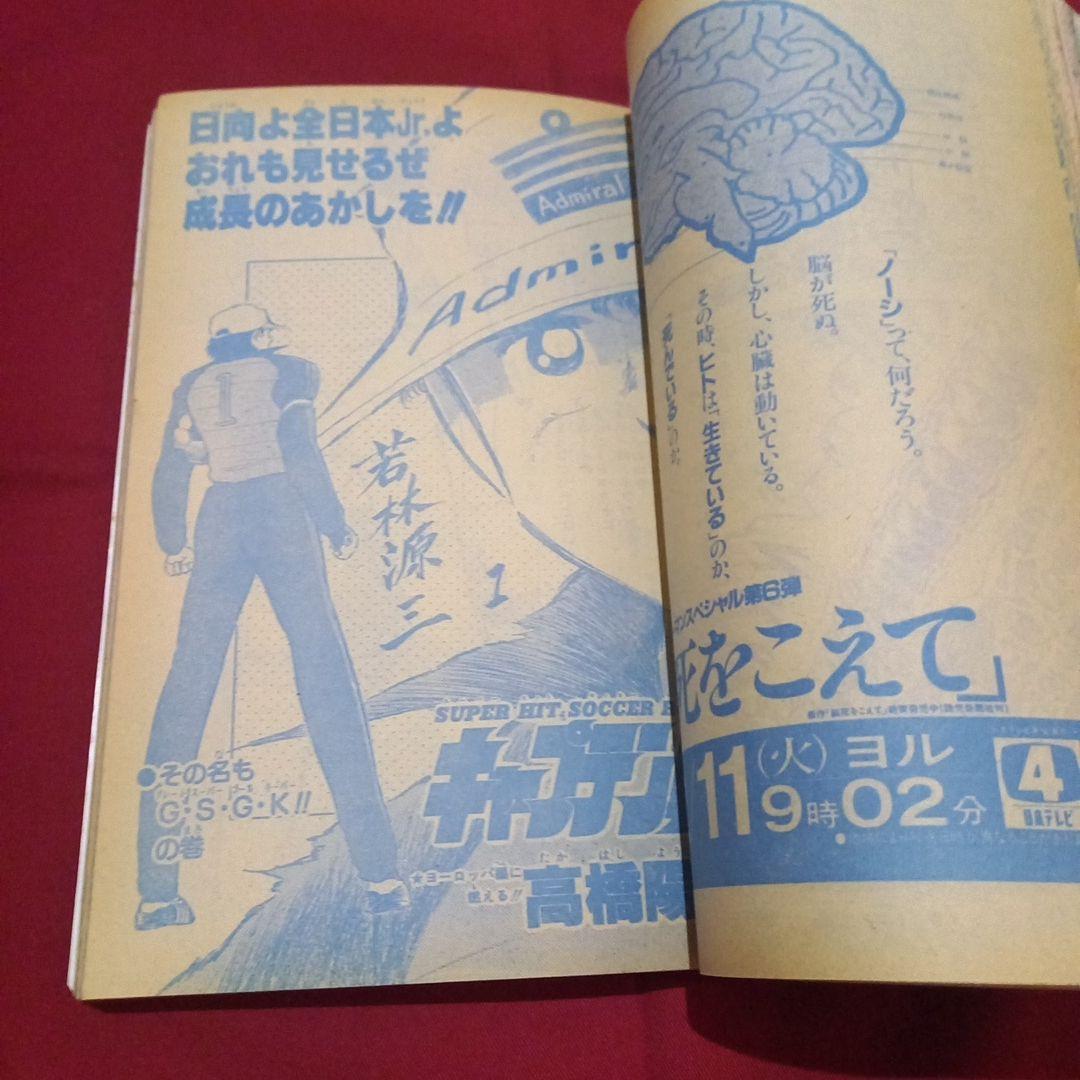 日向よ全日本Jr.よ
おれも見せるぜ
成長のあかしを!!
Admiral
Admir
1
若林源三
1
SUPER HIT SOCCER
キャプテン
●その名も
G・S・G・K!!
の巻
★ヨーロッパ編に
燃える!!
たか はし よう
高橋陽
「ノーシ」って、何だろう。
脳が死ぬ。
しかし、心臓は動いている。
その時、ヒトは「生きている」のか、
「死んでいる」のか。
スペシャル第6弾
死をこえて」
11(火)ヨル
9時02分
4
日本テレビ